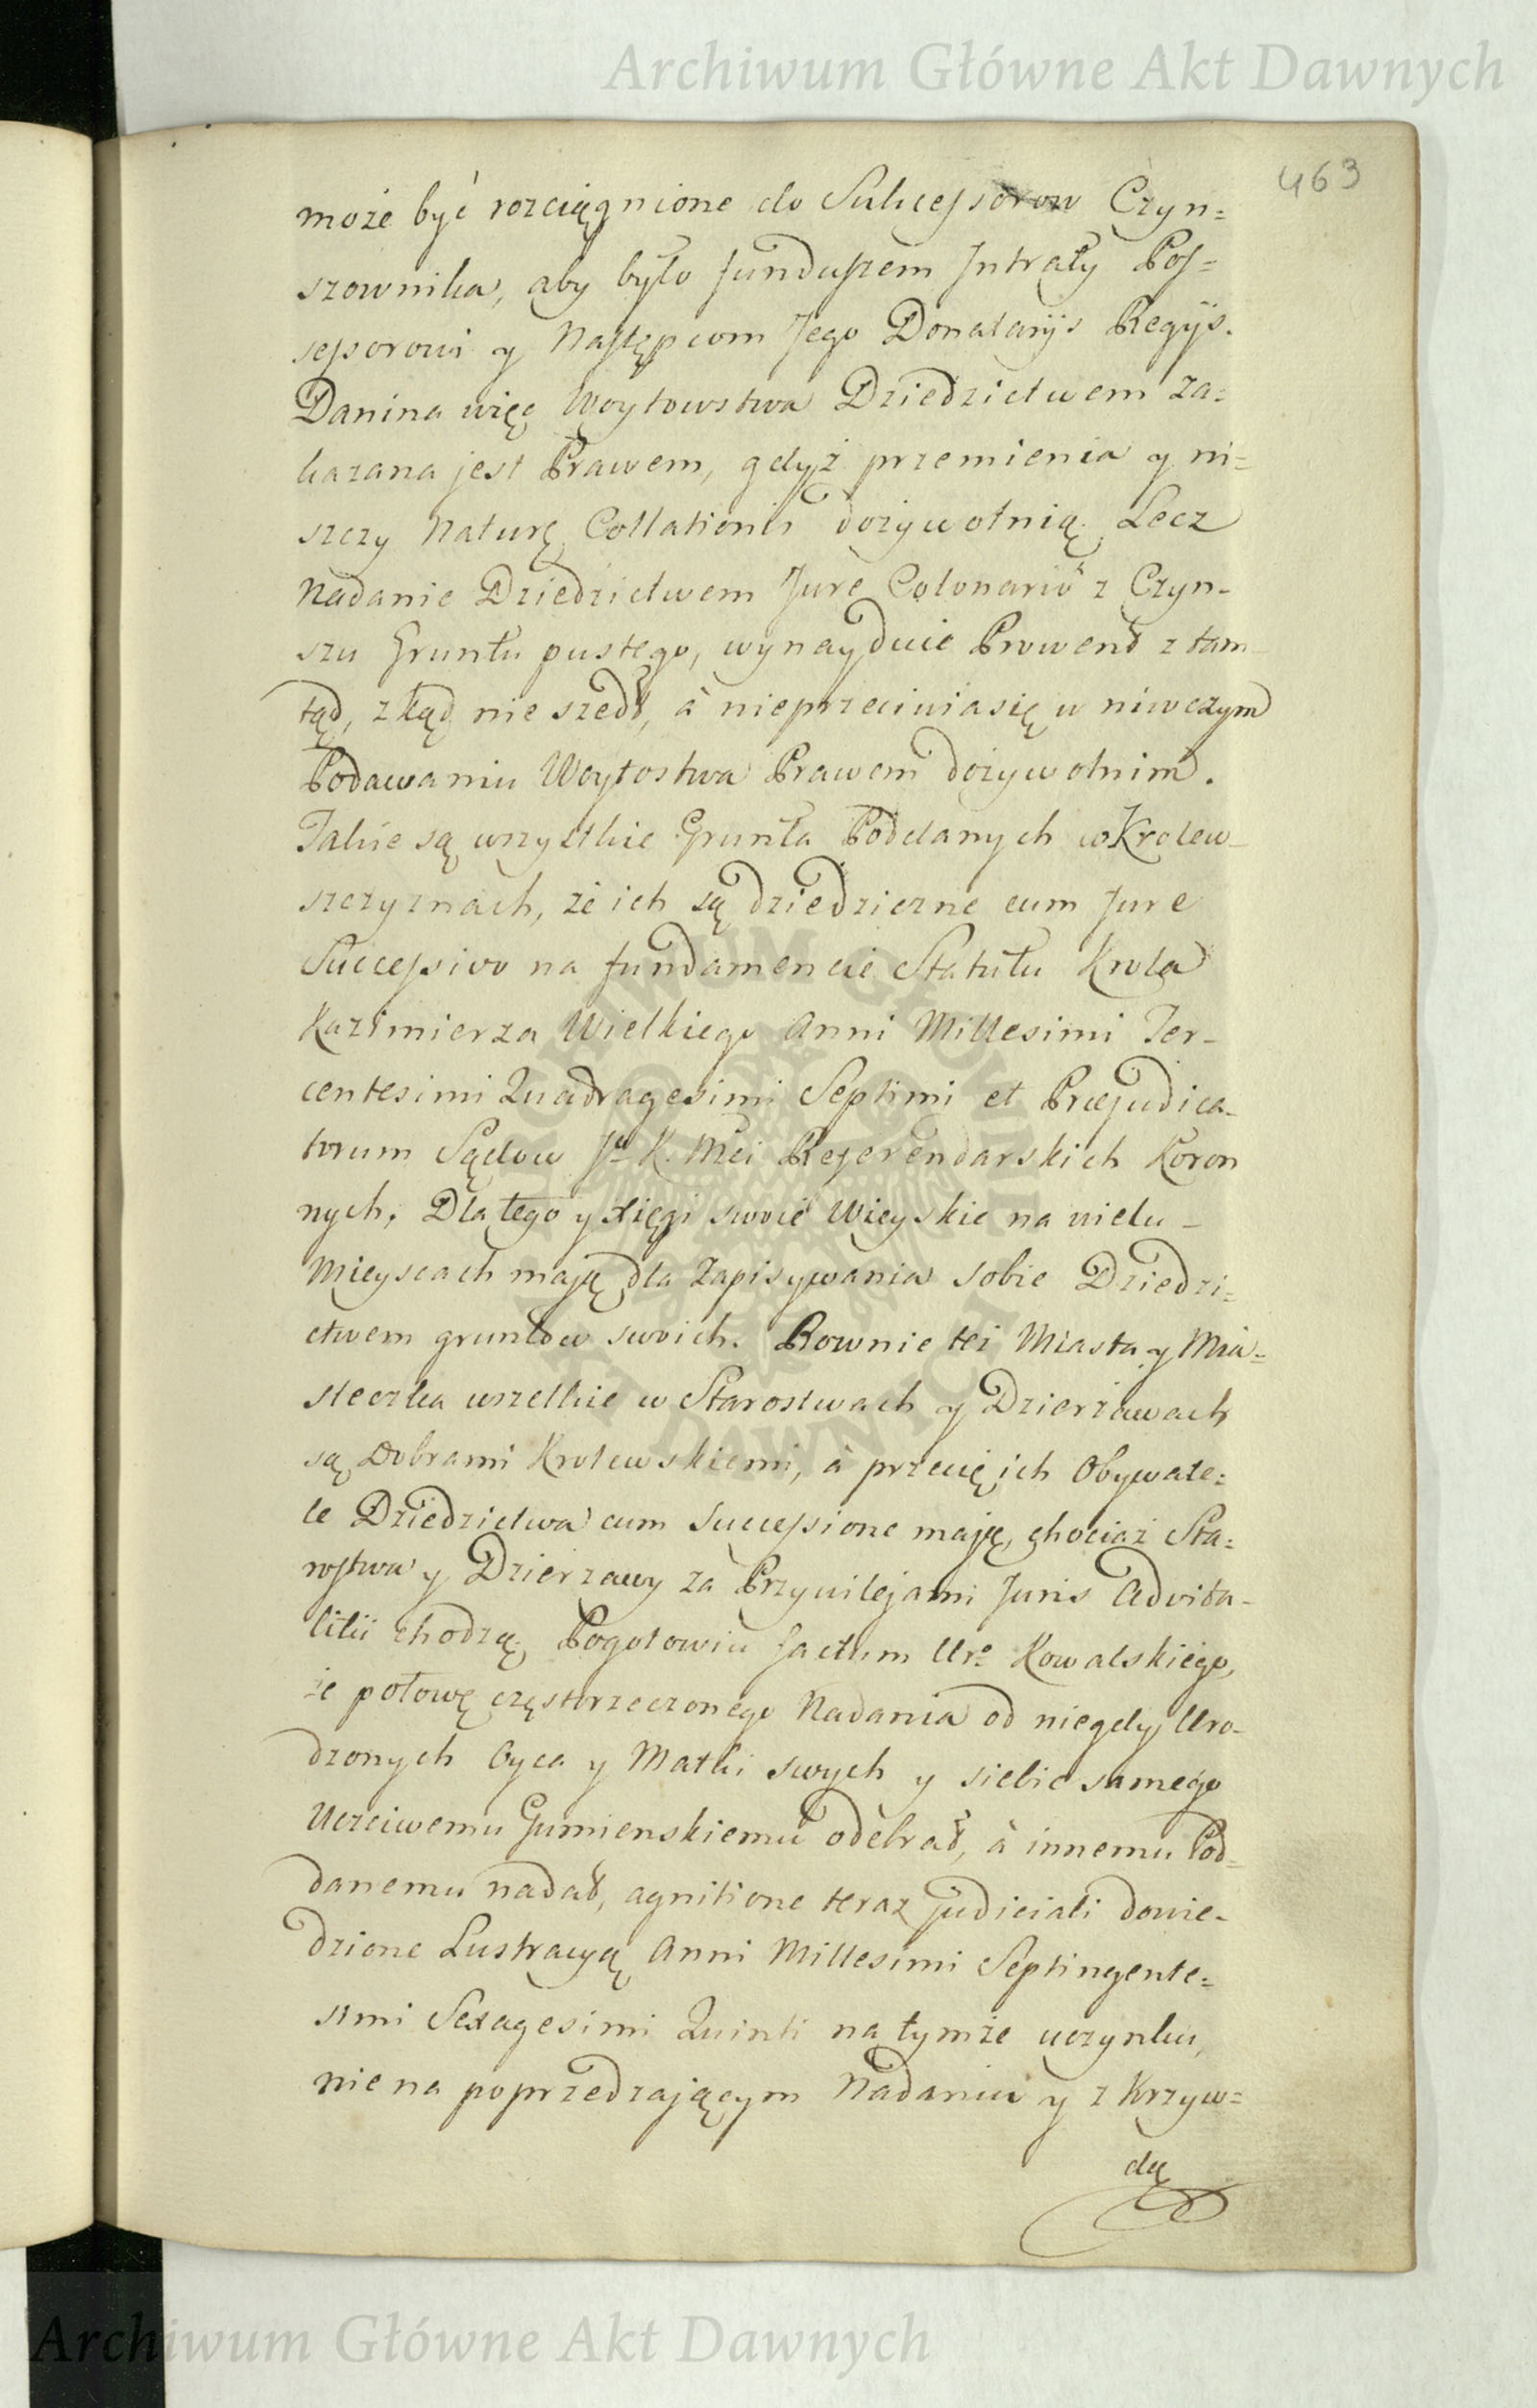 Archiwum Główne Akt Dawnych
463
może być rozciągnione do Sukcessorow Czyn=
szownika, aby było funduszem Intraty Pos=
sessorowi y Następcom Jego Donatarijs Regijs.
Danina więc Woytowstwa Dziedzictwem za=
kazana jest Prawem, gdyż przemienia y ni=
szczy Naturę Collationis dożywotnią. Lecz
Nadanie Dziedzictwem Jure Colonario z Czyn-
szu Gruntu pustego, wynayduie Prowent z tam-
tąd, zkąd nie szedł, à nieprzeciwia się w niwczym
Podawaniu Woytostwa Prawem dożywotnim.
Takie są wszystkie Grunta Poddanych w Krolew-
szczyznach, że ich są dziedziczne cum Jure
Successivo na fundamencie Statutu Krola
Kazimierza Wielkiego Anni Millesimi Ter-
centesimi Quadragesimi Septimi et Præjudica-
torum Sądow J. K. Mci Referendarskich Koron
nych, Dla tego y xięgi swoie Wieyskie na wielu -
Mieyscach mają dla Zapisywania sobie Dziedzi=
ctwem gruntow swoich. Rownie też Miasta y Mia=
steczka wszelkie w Starostwach y Dzierżawach
są Dobrami Krolewskiemi, à przecię ich Obywate=
le Dziedzictwa cum Successione mają, chociaż Sta=
rostwa y Dzierzawy za Przywilejami Juris Advita-
litii chodzą. Pogotowiu factum Ur. Kowalskiego,
że połowę częstorzeczonego Nadania od niegdy Uro-
dzonych Oyca y Matki swych y siebie samego
Uczciwemu Gumienskiemu odebrał, à innemu Pod=
danemu nadał, agnitione teraz judiciali dowie-
dzione Lustracyą Anni Millesimi Septingente=
simi Sexagesimi Quinti na tymże uczynku,
nie na poprzedzającym Nadaniu y z Krzyw=
dą
Archiwum Główne Akt Dawnych